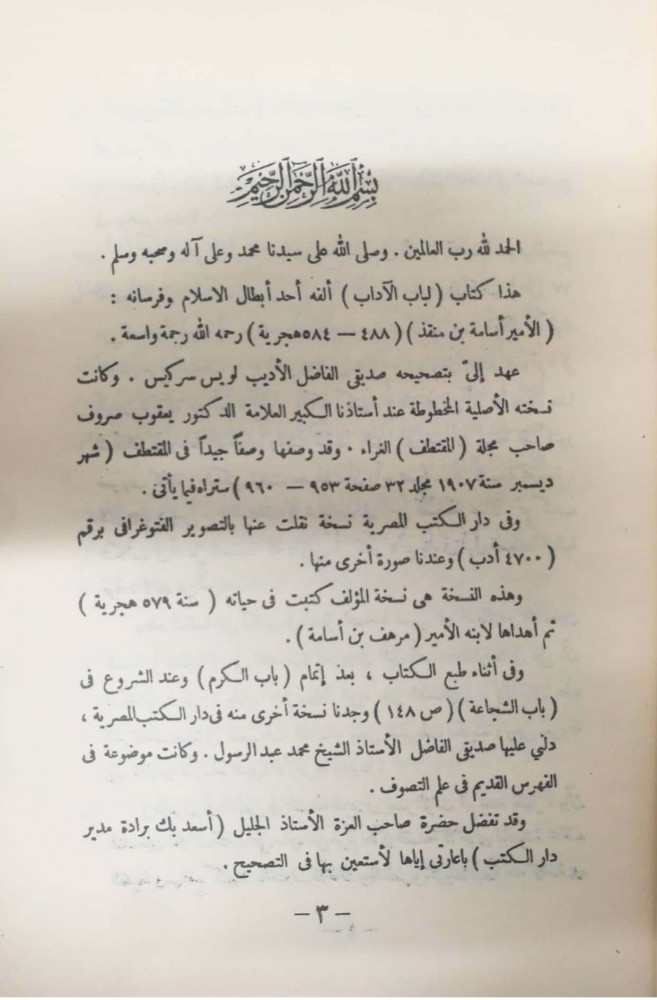 بسم الله الرحمن الرحيم
الحمد لله رب العالمين . وصلى الله على سيدنا محمد وعلى آله وصحبه وسلم .
هذا كتاب ( لباب الآداب ) ألفه أحد أبطال الاسلام وفرسانه :
( الأمير أسامة بن منقذ ) ( ٤٨٨ — ٥٨٤ هجرية ) رحمه الله رحمة واسعة .
عهد إلىّ بتصحيحه صديقى الفاضل الأديب لويس سركيس . وكانت
نسخته الأصلية المخطوطة عند أستاذنا الكبير العلامة الدكتور يعقوب صروف
صاحب مجلة ( المقتطف ) الغراء . وقد وصفها وصفاً جيداً فى المقتطف ( شهر
ديسمبر سنة ١٩٠٧ مجلد ٣٢ صفحة ٩٥٣ — ٩٦٠ ) ستراه فيما يأتى .
وفى دار الكتب المصرية نسخة نقلت عنها بالتصوير الفتوغرافى برقم
( ٤٧٠٠ أدب ) وعندنا صورة أخرى منها .
وهذه النسخة هى نسخة المؤلف كتبت فى حياته ( سنة ٥٧٩ هجرية )
ثم أهداها لابنه الأمير ( مرهف بن أسامة ) .
وفى أثناء طبع الكتاب ، بعد إتمام ( باب الكرم ) وعند الشروع فى
( باب الشجاعة ) ( ص ١٤٨ ) وجدنا نسخة أخرى منه فى دار الكتب المصرية ،
دلني عليها صديقى الفاضل الأستاذ الشيخ محمد عبد الرسول . وكانت موضوعة فى
الفهرس القديم فى علم التصوف .
وقد تفضل حضرة صاحب العزة الأستاذ الجليل ( أسعد بك برادة مدير
دار الكتب ) باعارتى إياها لأستعين بها فى التصحيح .
— ٣ —